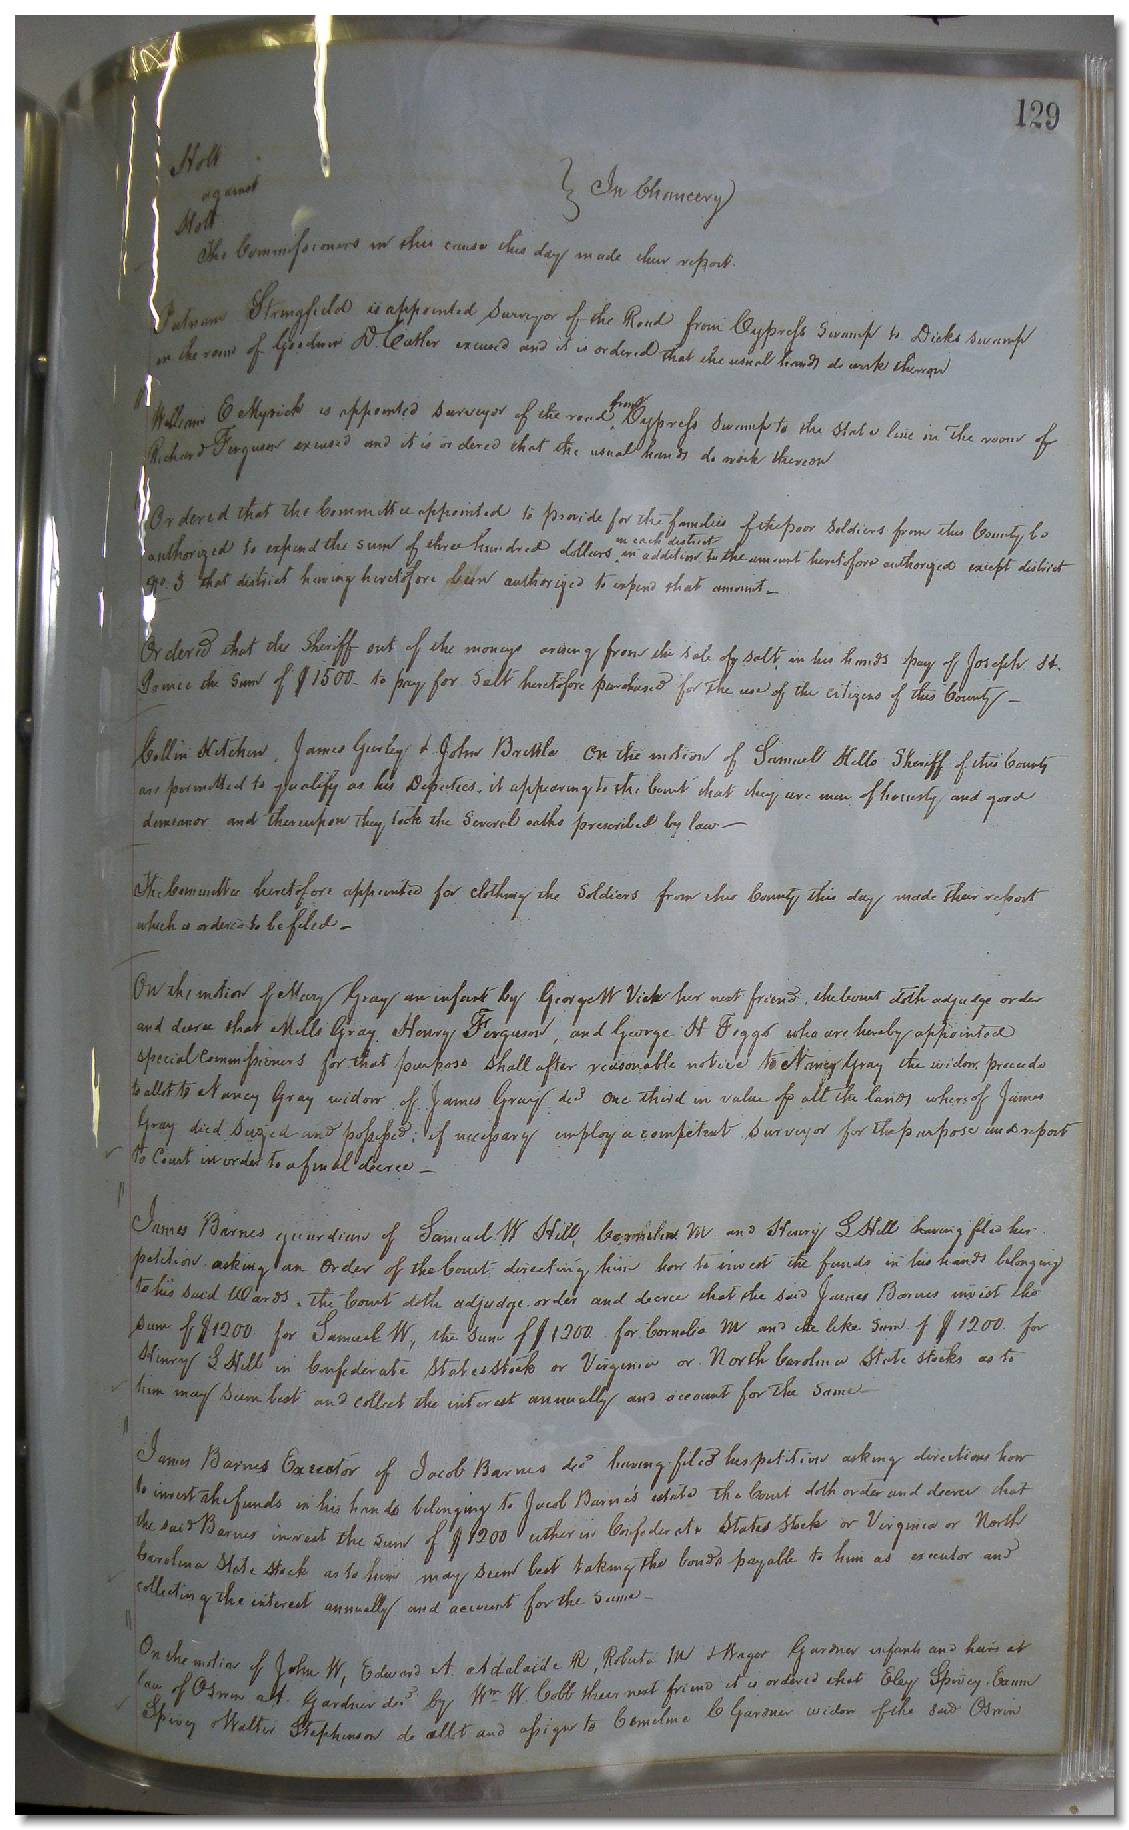 129
Holt
against
Holt
} In Chancery
The Commissioners in this cause this day made their report.
Putnam Stringfield is appointed Surveyor of the Road from Cypress Swamp to Dicks swamp
in the room of Goodwin D. Cutler excused and it is ordered that the usual hands do work thereon
William E Myrick is appointed surveyor of the road from Cypress Swamp to the State line in the room of
Richard Ferguson excused and it is ordered that the usual hands do work thereon
Ordered that the Committee appointed to provide for the families of the poor soldiers from this County be
authorized to expend the sum of three hundred dollars in each district in addition to the amount heretofore authorized except district
No. 3 that district having heretofore been authorized to expend that amount_
Ordered that the Sheriff out of the moneys arising from the sale of salt in his hands pay of Joseph H.
the sum of $1500. to pay for salt heretofore purchased for the use of the citizens of this County_
Collin Kitchen, James Gurley & John Brittle on the motion of Samuel Kello Sheriff of this County
are permitted to qualify as his Deputies, it appearing to the Court that they are men of honesty and good
demeanor and thereupon they took the several oaths prescribed by law_
The Committee heretofore appointed for clothing the soldiers from this County this day made their report
which is ordered to be filed_
On the motion of Mary Gray an infant by George W Vick her next friend, the Court doth adjudge order
and decree that Mills Gray, Henry Ferguson, and George H Feggo who are hereby appointed
special Commissioners for that purpose shall after reasonable notice to Nancy Gray the widow, proceed
to allot to Nancy Gray widow of James Gray decd one third in value of all the lands whereof James
Gray died seized and possessed; if necessary employ a competent surveyor for the purpose and report
to Court in order to a final decree_
James Barnes guardian of Samuel W Hill, Cornelia M and Henry L Hill having filed his
petition asking an order of the Court directing him how to invest the funds in his hands belonging
to his said Wards, the Court doth adjudge order and decree that the said James Barnes invest the
sum of $1200. for Samuel W, the sum of $1200. for Cornelia M and the like sum of $1200. for
Henry L Hill in Confederate States stock or Virginia or North Carolina State stocks as to
him may seem best and collect the interest annually and account for the same_
James Barnes Executor of Jacob Barnes decd having filed his petition asking directions how
to invest the funds in his hands belonging to Jacob Barnes estate the Court doth order and decree that
the said Barnes invest the sum of $1200 either in Confederate States stock or Virginia or North
Carolina State stock as to him may seem best taking the bonds payable to him as executor and
collecting the interest annually and account for the same_
On the motion of John W, Edward A. Adelaide R, Roberta M & Wager Gardner infants and heirs at
law of Oswin Gardner decd by Wm W. Cobb their next friend it is ordered that Eley Spivey, Exum
Spivey & Walter Stephenson do allot and assign to Emeline C Gardner widow of the said Oswin